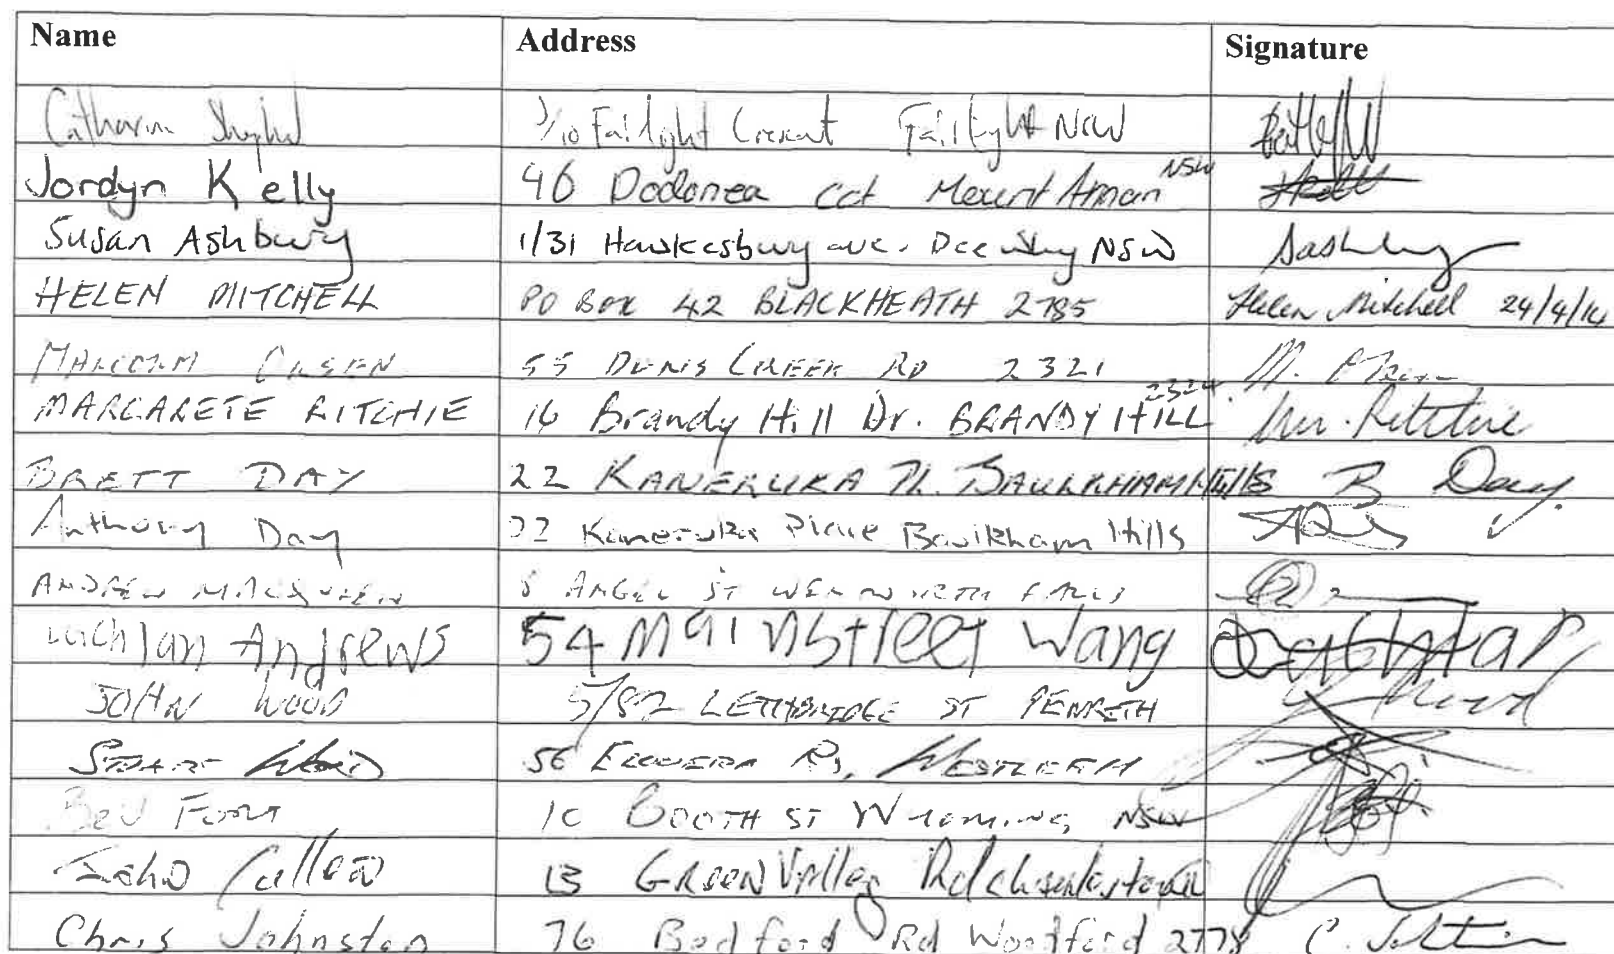 Name Address Signature
3/10 Fairlight Crescent Fairlight NSW
Jordyn Kelly 46 Dodonea cct Mount Annan NSW
Susan Ashbury 1/31 Hawkesbury ave. Dee Why NSW Sashbury
HELEN MITCHELL PO BOX 42 BLACKHEATH 2785 Helen Mitchell 24/4/14
MALCOLM OLSEN 55 DUNS CREEK RD 2321 M. Olsen
MARGARETE RITCHIE 16 Brandy Hill Dr. BRANDY HILL 2324 M. Ritchie
BRETT DAY 22 KANERUKA PL. BAULKHAM HILLS B Day
Anthony Day 22 Kaneruka Place Baulkham Hills
ANDREW MACQUEEN ANGEL ST WENTWORTH FALLS
Lachlan Andrews 54 Mainstreet Wang
JOHN WOOD 5/82 LETHBRIDGE ST PENRITH J Wood
STUART 56 ELOUERA RD, WESTLEIGH
BEV FORT 10 BOOTH ST WYOMING NSW
John Cullen 13 Green Valley Rd
Chris Johnston 76 Bedford Rd Woodford 2778 C. Johnston